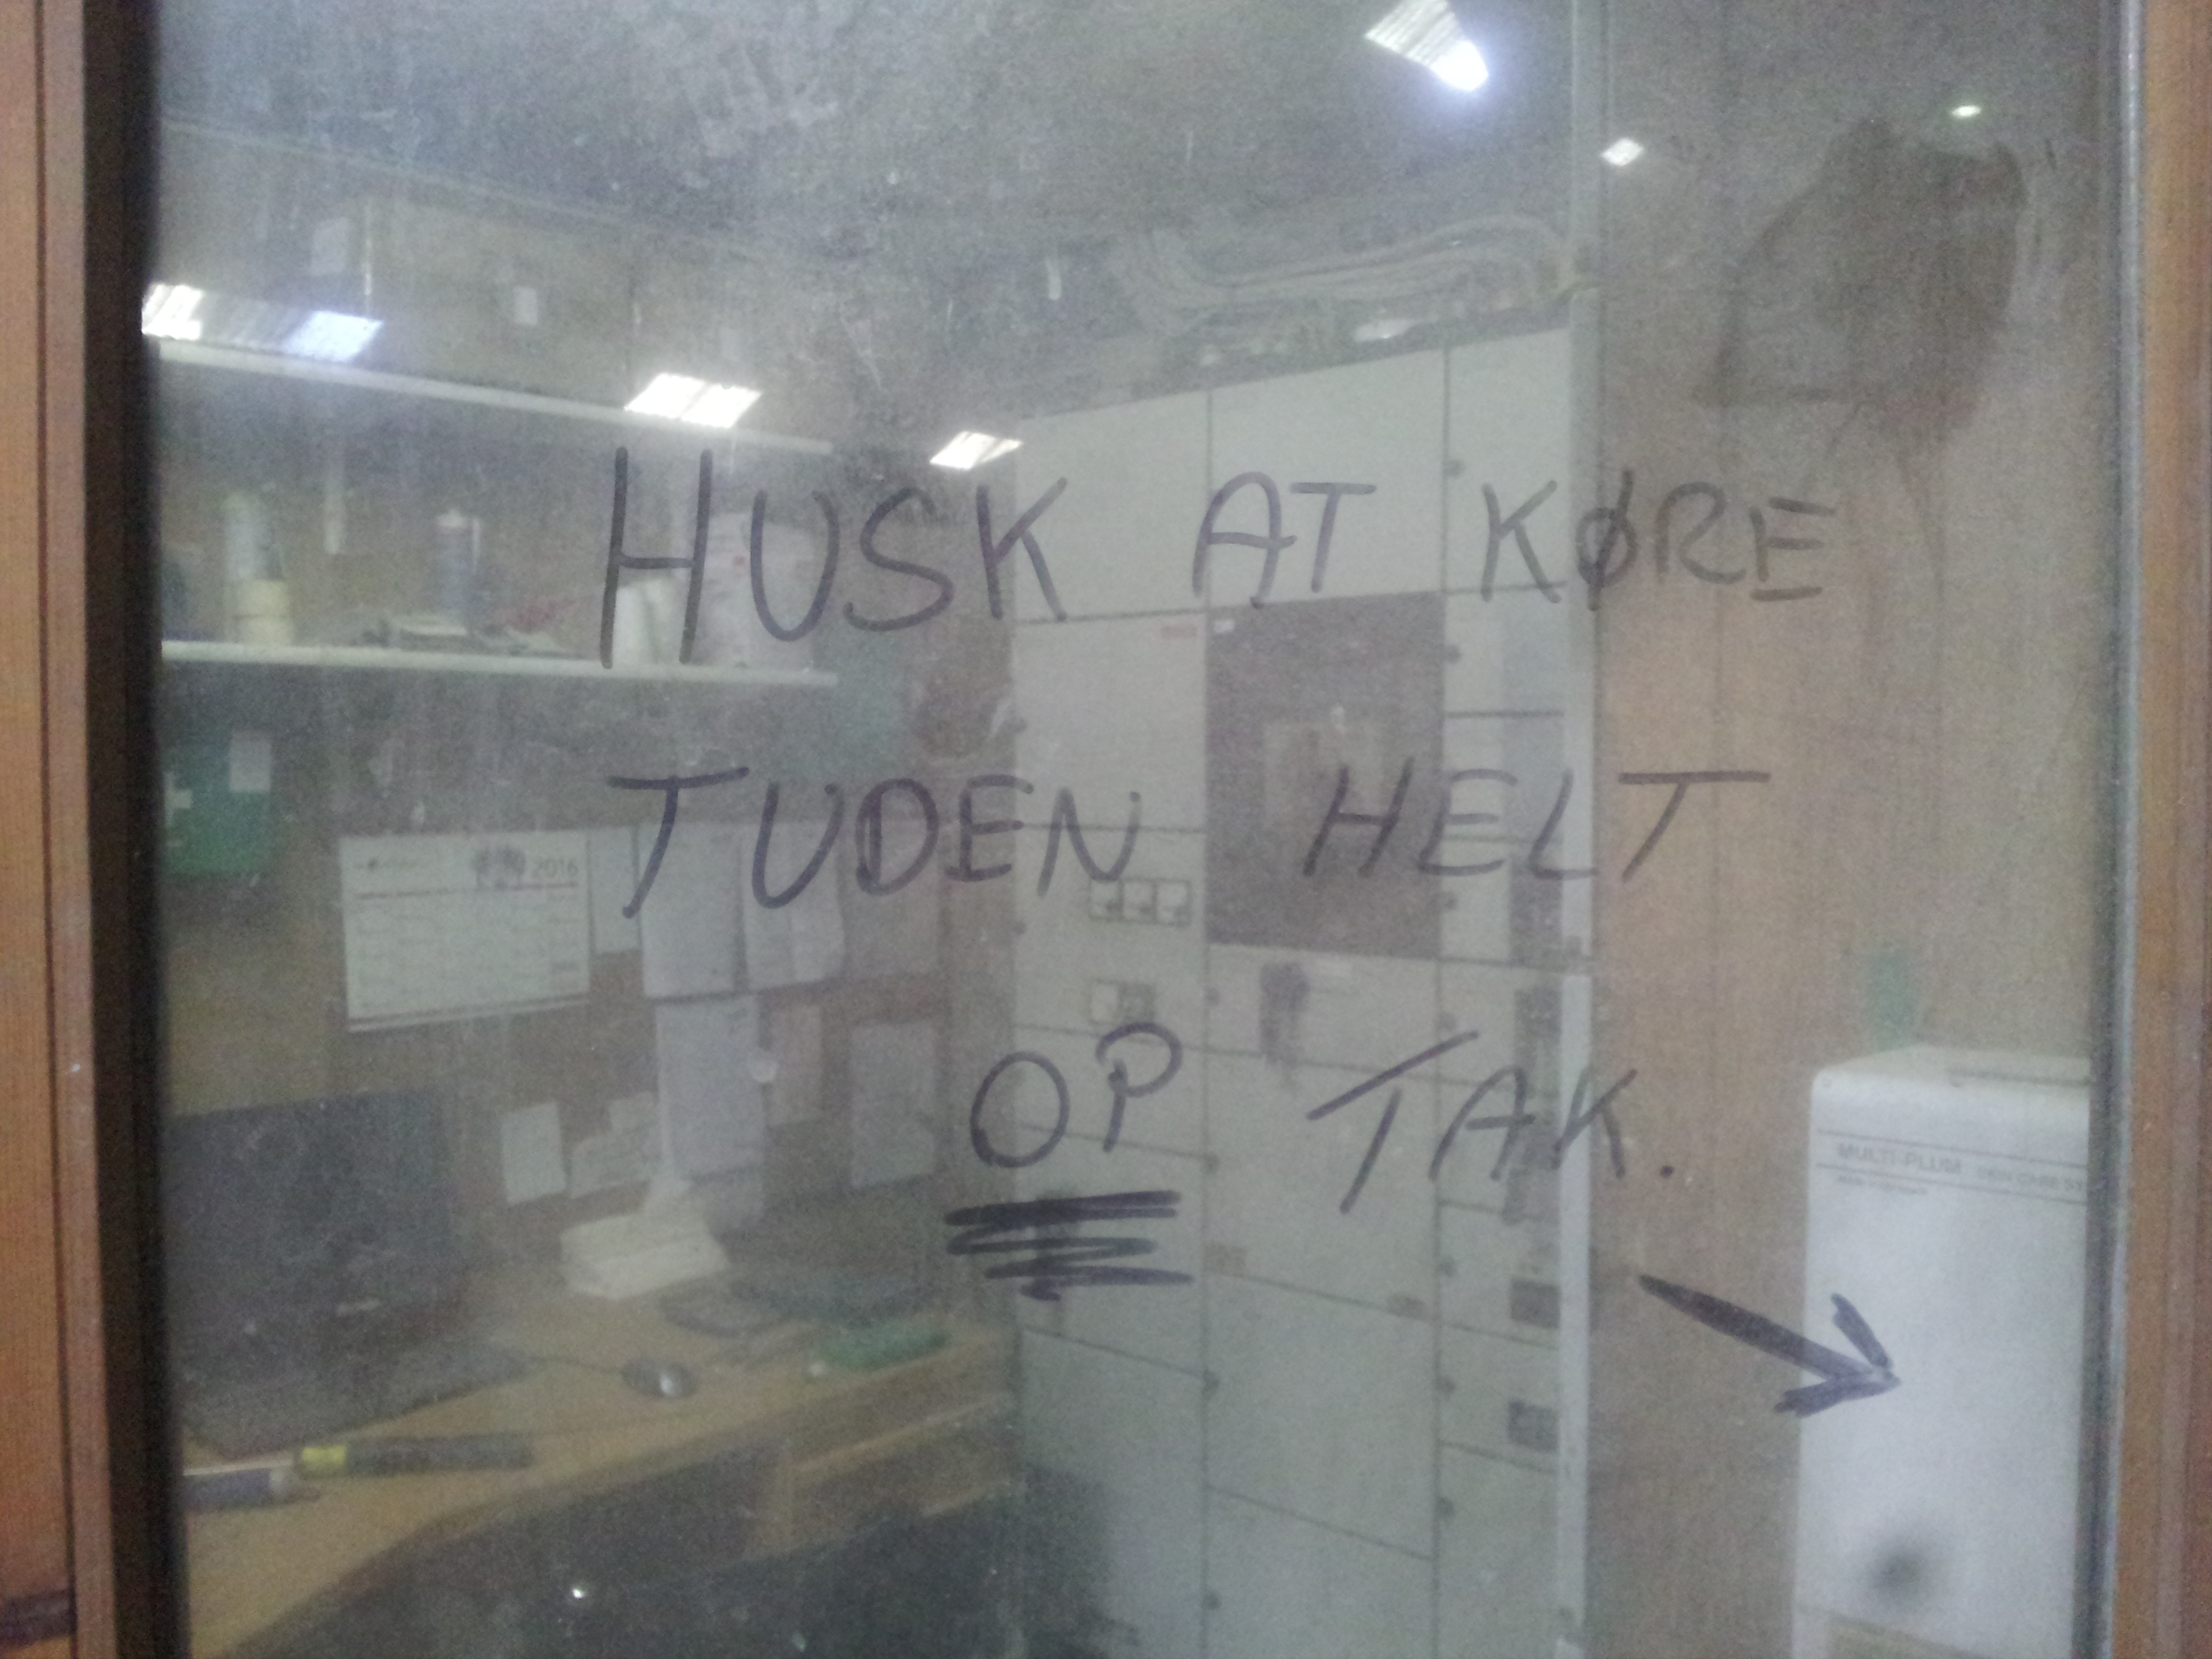 HUSK AT KØRE
TUDEN HELT
OP TAK.
2016
MULTI-PLUM